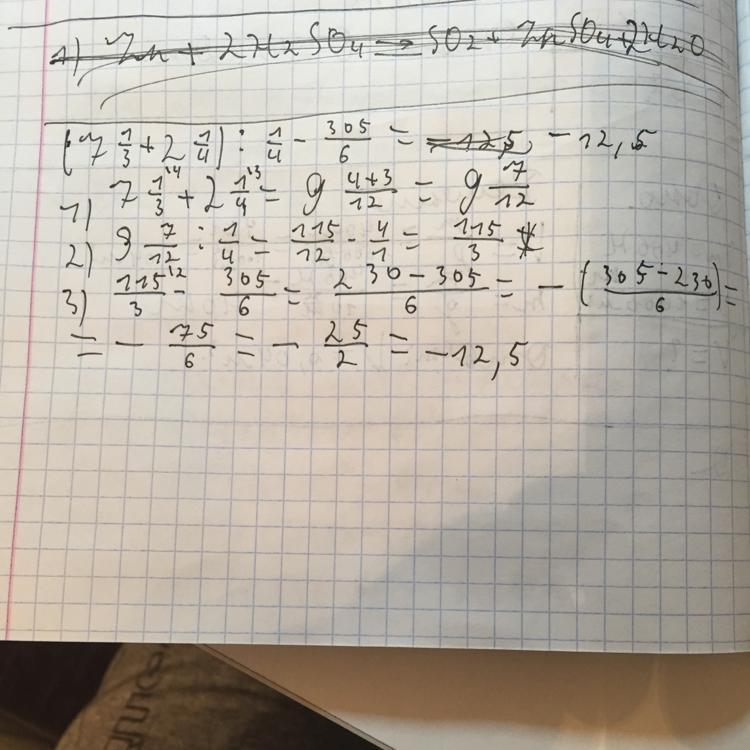 1) Zn + 2H2SO4 = SO2 + ZnSO4 + 2H2O
(7 1/3 + 2 1/4) : 1/4 - 305/6 = -12,5, -12,5
1) 7 1/3 ^4 + 2 1/4 ^3 = 9 4+3/12 = 9 7/12
2) 9 7/12 : 1/4 = 115/12 · 4/1 = 115/3
3) 115/3 ^2 - 305/6 = 230-305/6 = -(305-230/6) =
= - 75/6 = - 25/2 = -12,5